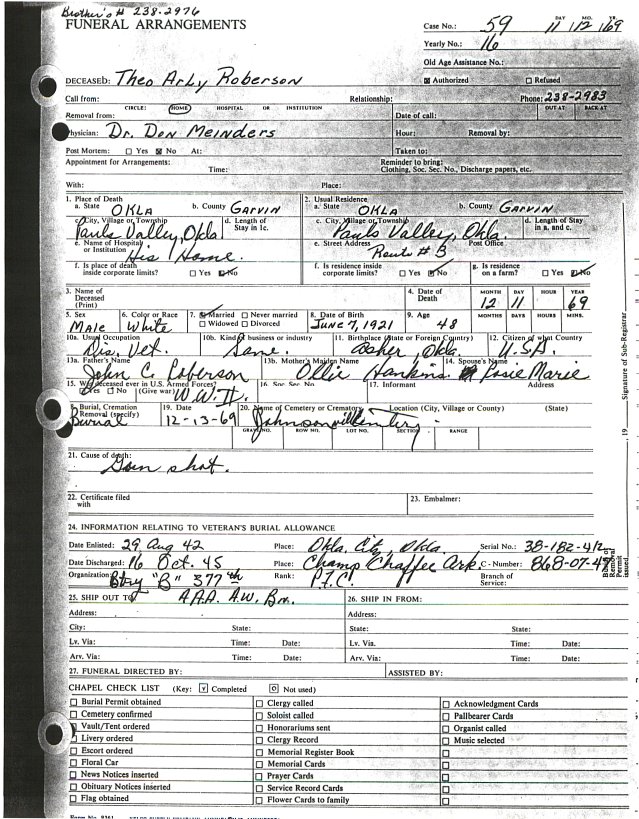 Brother's # 238-2976
FUNERAL ARRANGEMENTS
Case No.: 59 DAY MO. YR.
11 12 69
Yearly No.: 16
Old Age Assistance No.:
DECEASED: Theo Arly Roberson Authorized Refused
Call from: Relationship: Phone: 238-2983
CIRCLE: HOME HOSPITAL OR INSTITUTION OUT AT BACK AT
Removal from: Date of call:
Physician: Dr. Don Meinders Hour: Removal by:
Post Mortem: Yes No At: Taken to:
Appointment for Arrangements: Time: Reminder to bring:
Clothing, Soc. Sec. No., Discharge papers, etc.
With: Place:
1. Place of Death 2. Usual Residence
a. State OKLA b. County GARVIN a. State OKLA b. County GARVIN
c. City, Village or Township Pauls Valley, Okla. d. Length of Stay in 1c. c. City, Village or Township Pauls Valley, Okla. d. Length of Stay in a. and c.
e. Name of Hospital or Institution His Home. e. Street Address Route # 3 Post Office
f. Is place of death inside corporate limits? Yes No f. Is residence inside corporate limits? Yes No g. Is residence on a farm? Yes No
3. Name of Deceased (Print) 4. Date of Death MONTH DAY HOUR YEAR
12 11 69
5. Sex 6. Color or Race 7. Married Never married Widowed Divorced 8. Date of Birth 9. Age MONTHS DAYS HOURS MINS.
Male White June 7, 1921 48
10a. Usual Occupation 10b. Kind of business or industry 11. Birthplace (State or Foreign Country) 12. Citizen of what Country
Dis. Vet. Same. Asher, Okla. U.S.A.
13a. Father's Name 13b. Mother's Maiden Name 14. Spouse's Name
John C. Roberson Ollie Hankins Rosie Marie
15. Was deceased ever in U.S. Armed Forces? 16. Soc. Sec. No. 17. Informant Address
Yes No (Give war) W.W. II.
18. Burial, Cremation Removal (specify) 19. Date 20. Name of Cemetery or Crematory Location (City, Village or County) (State)
Burial 12-13-69
GRAVE NO. ROW NO. LOT NO. SECTION RANGE
21. Cause of death:
Gun shot.
22. Certificate filed with 23. Embalmer:
24. INFORMATION RELATING TO VETERAN'S BURIAL ALLOWANCE
Date Enlisted: 29 Aug 42 Place: Okla. City, Okla. Serial No.: 38-182-412
Date Discharged: 16 Oct. 45 Place: Camp Chaffee Ark. C - Number:
Organization: Btry "B" 377th Rank: P.F.C. Branch of Service:
25. SHIP OUT TO A.A.A. A.W. Bn. 26. SHIP IN FROM:
Address: Address:
City: State: State: State:
Lv. Via: Time: Date: Lv. Via: Time: Date:
Arv. Via: Time: Date: Arv. Via: Time: Date:
27. FUNERAL DIRECTED BY: ASSISTED BY:
CHAPEL CHECK LIST (Key: Completed Not used)
Burial Permit obtained Clergy called Acknowledgment Cards
Cemetery confirmed Soloist called Pallbearer Cards
Vault/Tent ordered Honorariums sent Organist called
Livery ordered Clergy Record Music selected
Escort ordered Memorial Register Book
Floral Car Memorial Cards
News Notices inserted Prayer Cards
Obituary Notices inserted Service Record Cards
Flag obtained Flower Cards to family
Signature of Sub-Registrar
19
Burial or Removal Permit issued